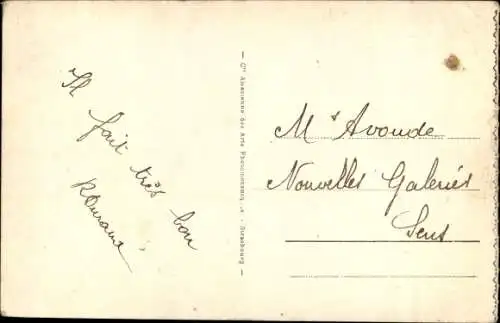 Il
fait très bon
— Cie Alsacienne des Arts Photomécaniques - Strasbourg —
Ms Avonde
Nouvelles Galeries
Sens